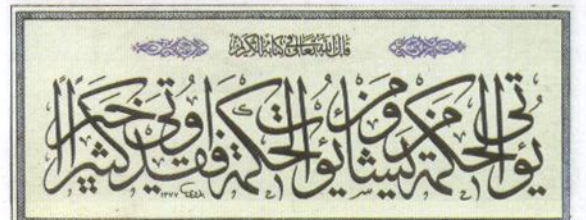 قال الله تعالى في كتابه الكريم
يؤتي الحكمة من يشاء ومن يؤت الحكمة فقد أوتي خيرا كثيرا